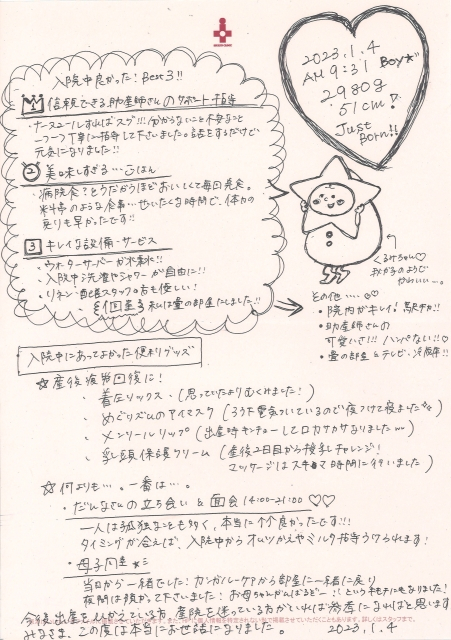 2023.1.4
AM 9:31 Boy★
2980g
51cm!
Just
Born!!
入院中良かった! Best3!!
1 信頼できる助産師さんのサポート・指導
・ナースコールすればスグ!!!分からないこと不安なこと
一つ一つ丁寧に指導して下さいました。話をするだけで
元気になりました!!
2 美味しすぎる…ごはん
・病院食?とうたがうほどおいしくて毎回完食。
料亭のような食事…ぜいたくな時間で、体力の
戻りも早かったです!!
3 キレイな設備・サービス
・ウォーターサーバーが本当!!
・入院中洗濯やシャワーが自由に!!
・リネン・配膳スタッフの方も優しい!
・個室 私は畳の部屋にしました!!
くるみちゃん♡
我が子のようで
かわいい…。
その他…
・院内がキレイ! 駅チカ!!
・助産師さんの
可愛いさ!!! ハンパない!!♡
・畳の部屋 & テレビ・冷蔵庫!!
入院中にあってよかった便利グッズ
☆産後疲労回復に!
・着圧ソックス (思っていたよりむくみました!)
・めぐりズムのアイマスク (ろうか電気ついているので夜つけて寝ました)
・メンソールリップ (出産時キンチョーしてロカサカサなりましたww)
・乳頭保護クリーム (産後2日目から授乳チャレンジ!
マッサージはスキマ時間に行いました)
☆何よりも…。一番は…。
・だんなさんの立ち会い & 面会 14:00-21:00 ♡♡
一人は孤独なことも多く、本当に良かったです!!!
タイミングが合えば、入院中からオムツがえやミルク指導うけられます!
・母子同室★ミ
当日から一緒でした!カンガルーケアから部屋に一緒に戻り
夜間は預かって下さいました!お母ちゃんがんばるぞー!!という気持ちにもなりました!
今後出産をむかえている方、産院を迷っている方がいれば参考になればと思います
みなさま、この度は本当にお世話になりました 2023.1.4.